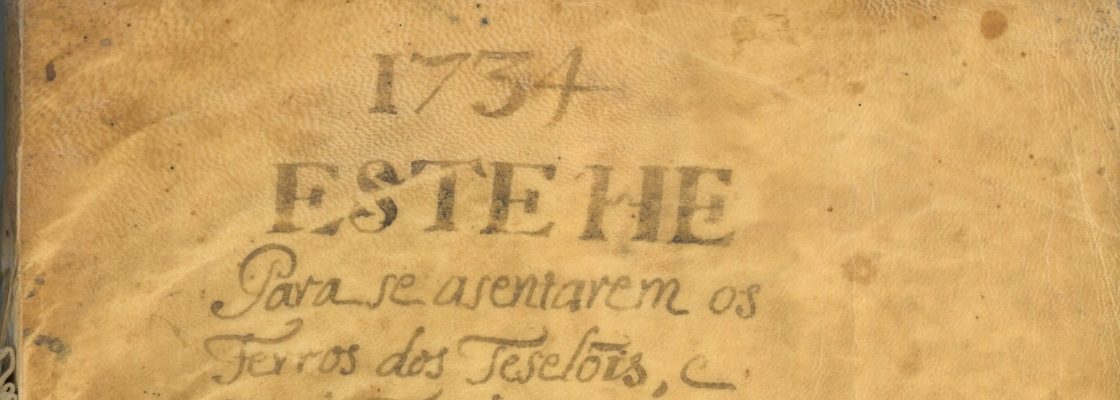 1734
ESTE HE
Para se asentarem os
Ferros dos Teselõis, e